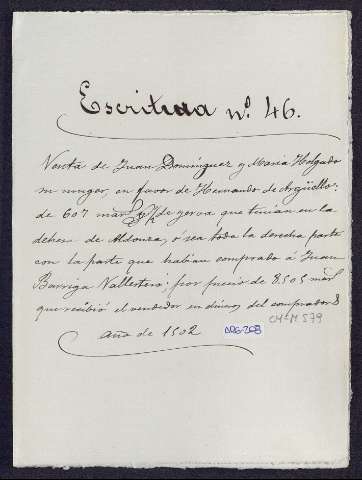 Escritura nº. 46.
Venta de Juan Dominguez y Maria Holgado
su muger, en favor de Hernando de Argüello,
de 607 mars de yerva que tenian en la
dehesa de Aldonza, ó sea toda la derecha parte
con la parte que habian comprado á Juan
Barriga Vallestero; por precio de 8.505 mars
que recibió el vendedor en dineros del comprador
año de 1502
ARG-208
CM-M 579